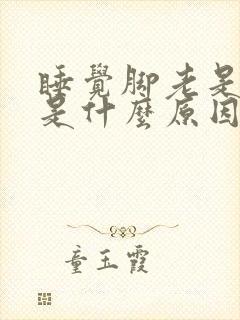 睡覺腳老是
是什麼原因
童玉霞